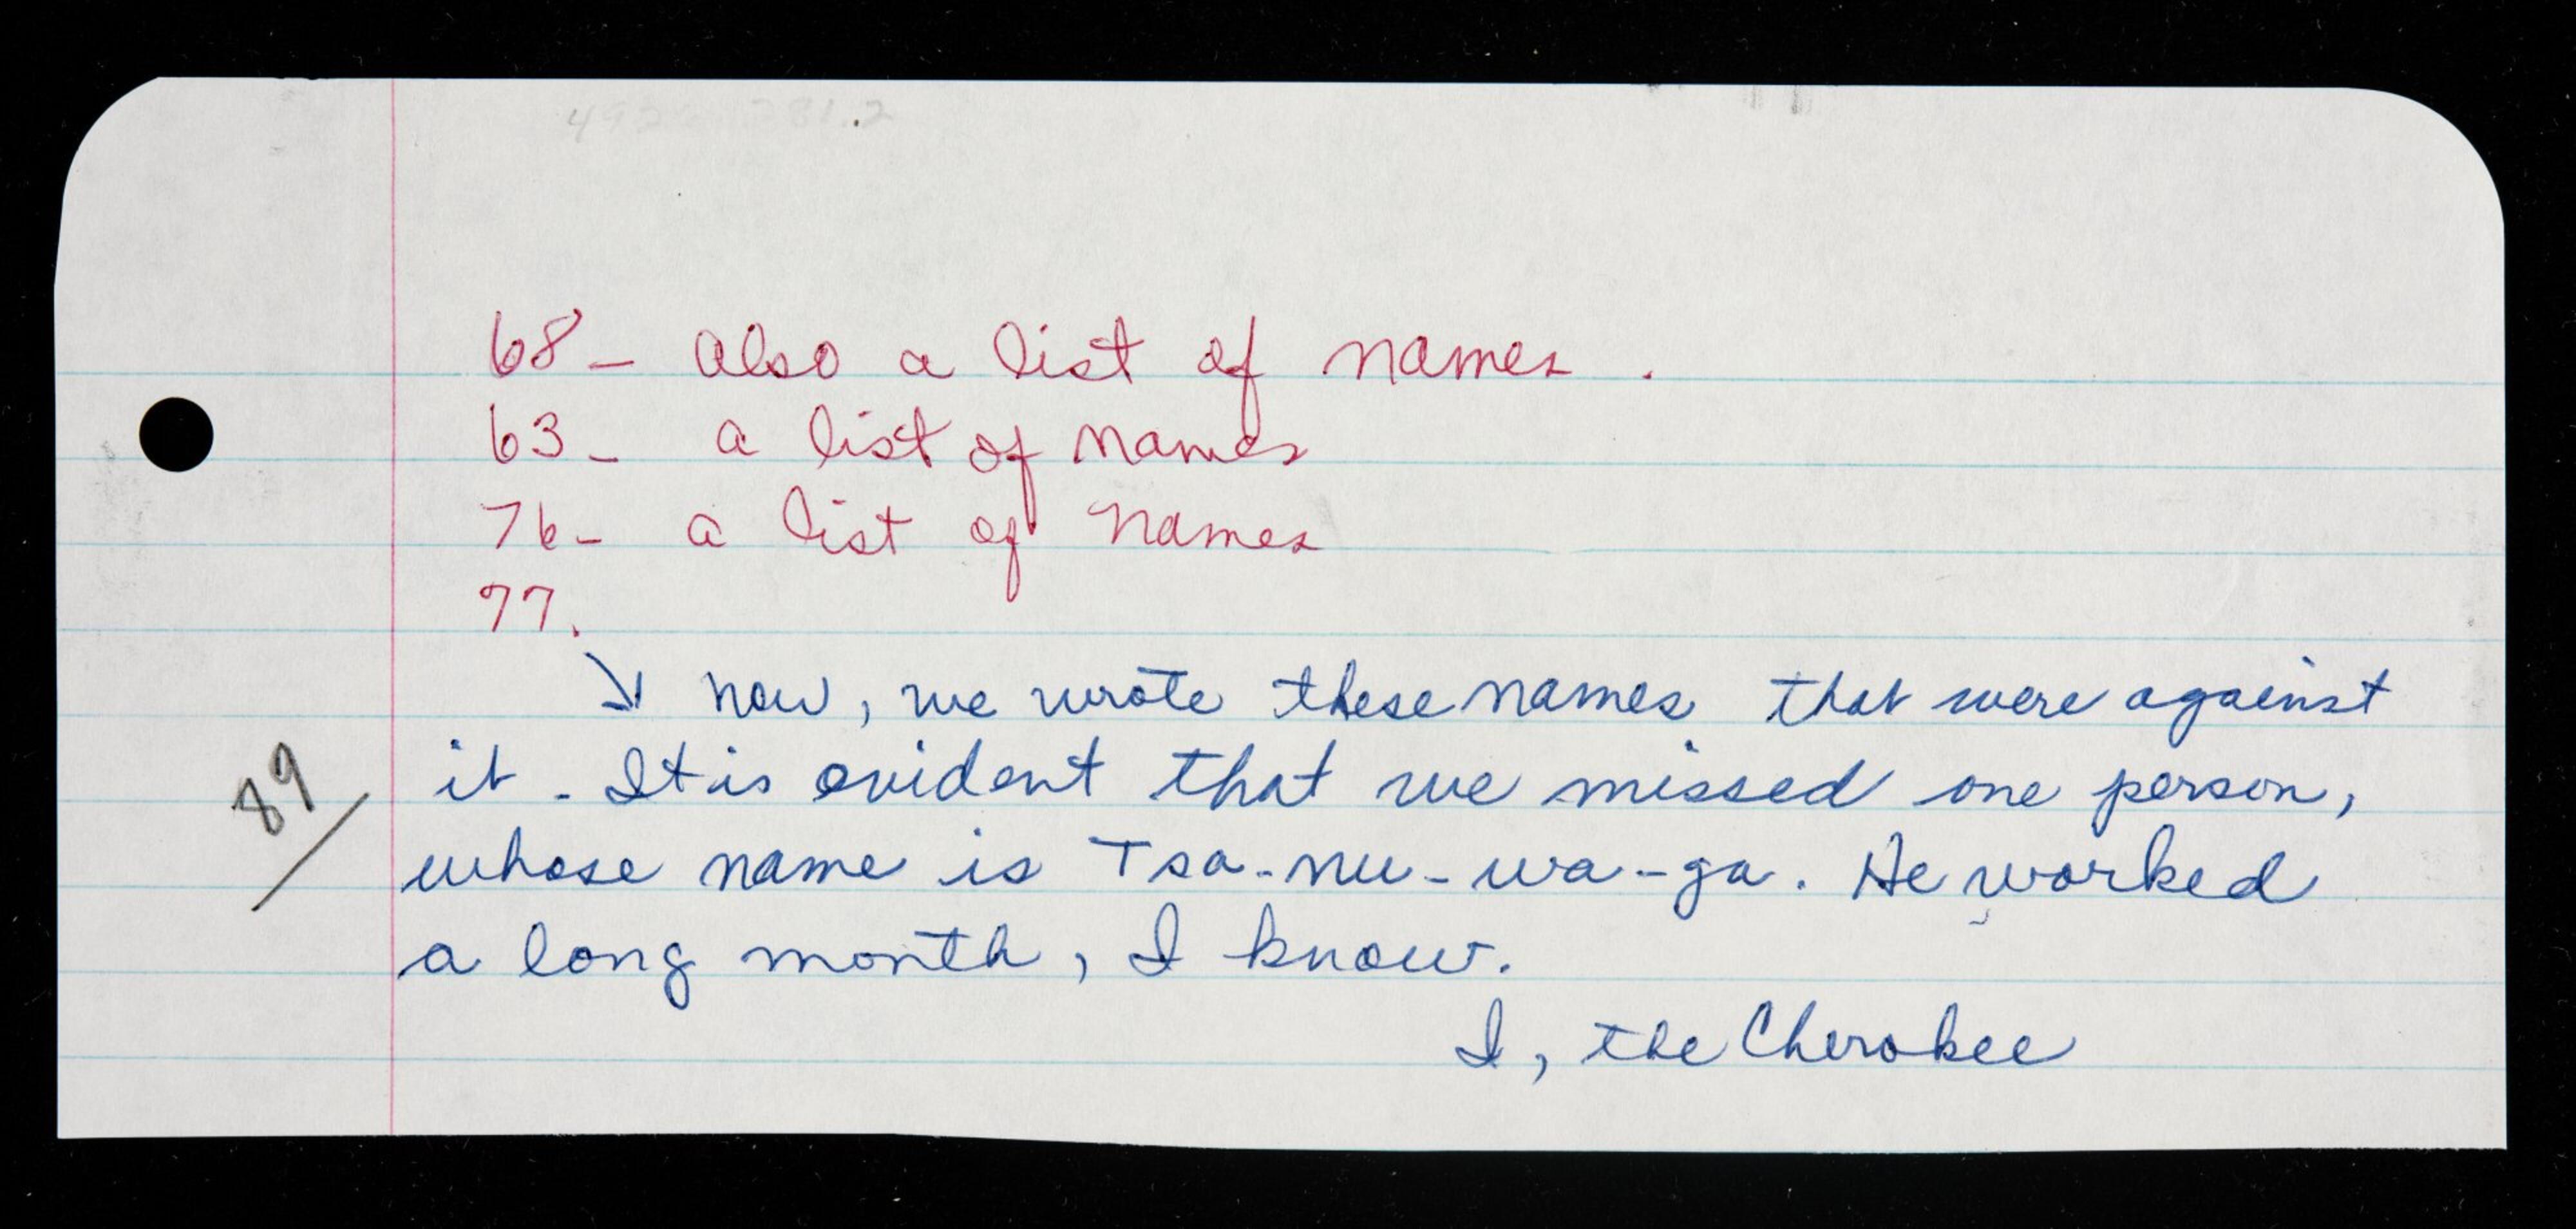 68 - Also a list of names.
63 - a list of names
76 - a list of names
77.
Now, we wrote these names that were against
it. It is evident that we missed one person,
89
whose name is Tsa-nu-wa-ga. He worked
a long month, I know.
I, the Cherokee